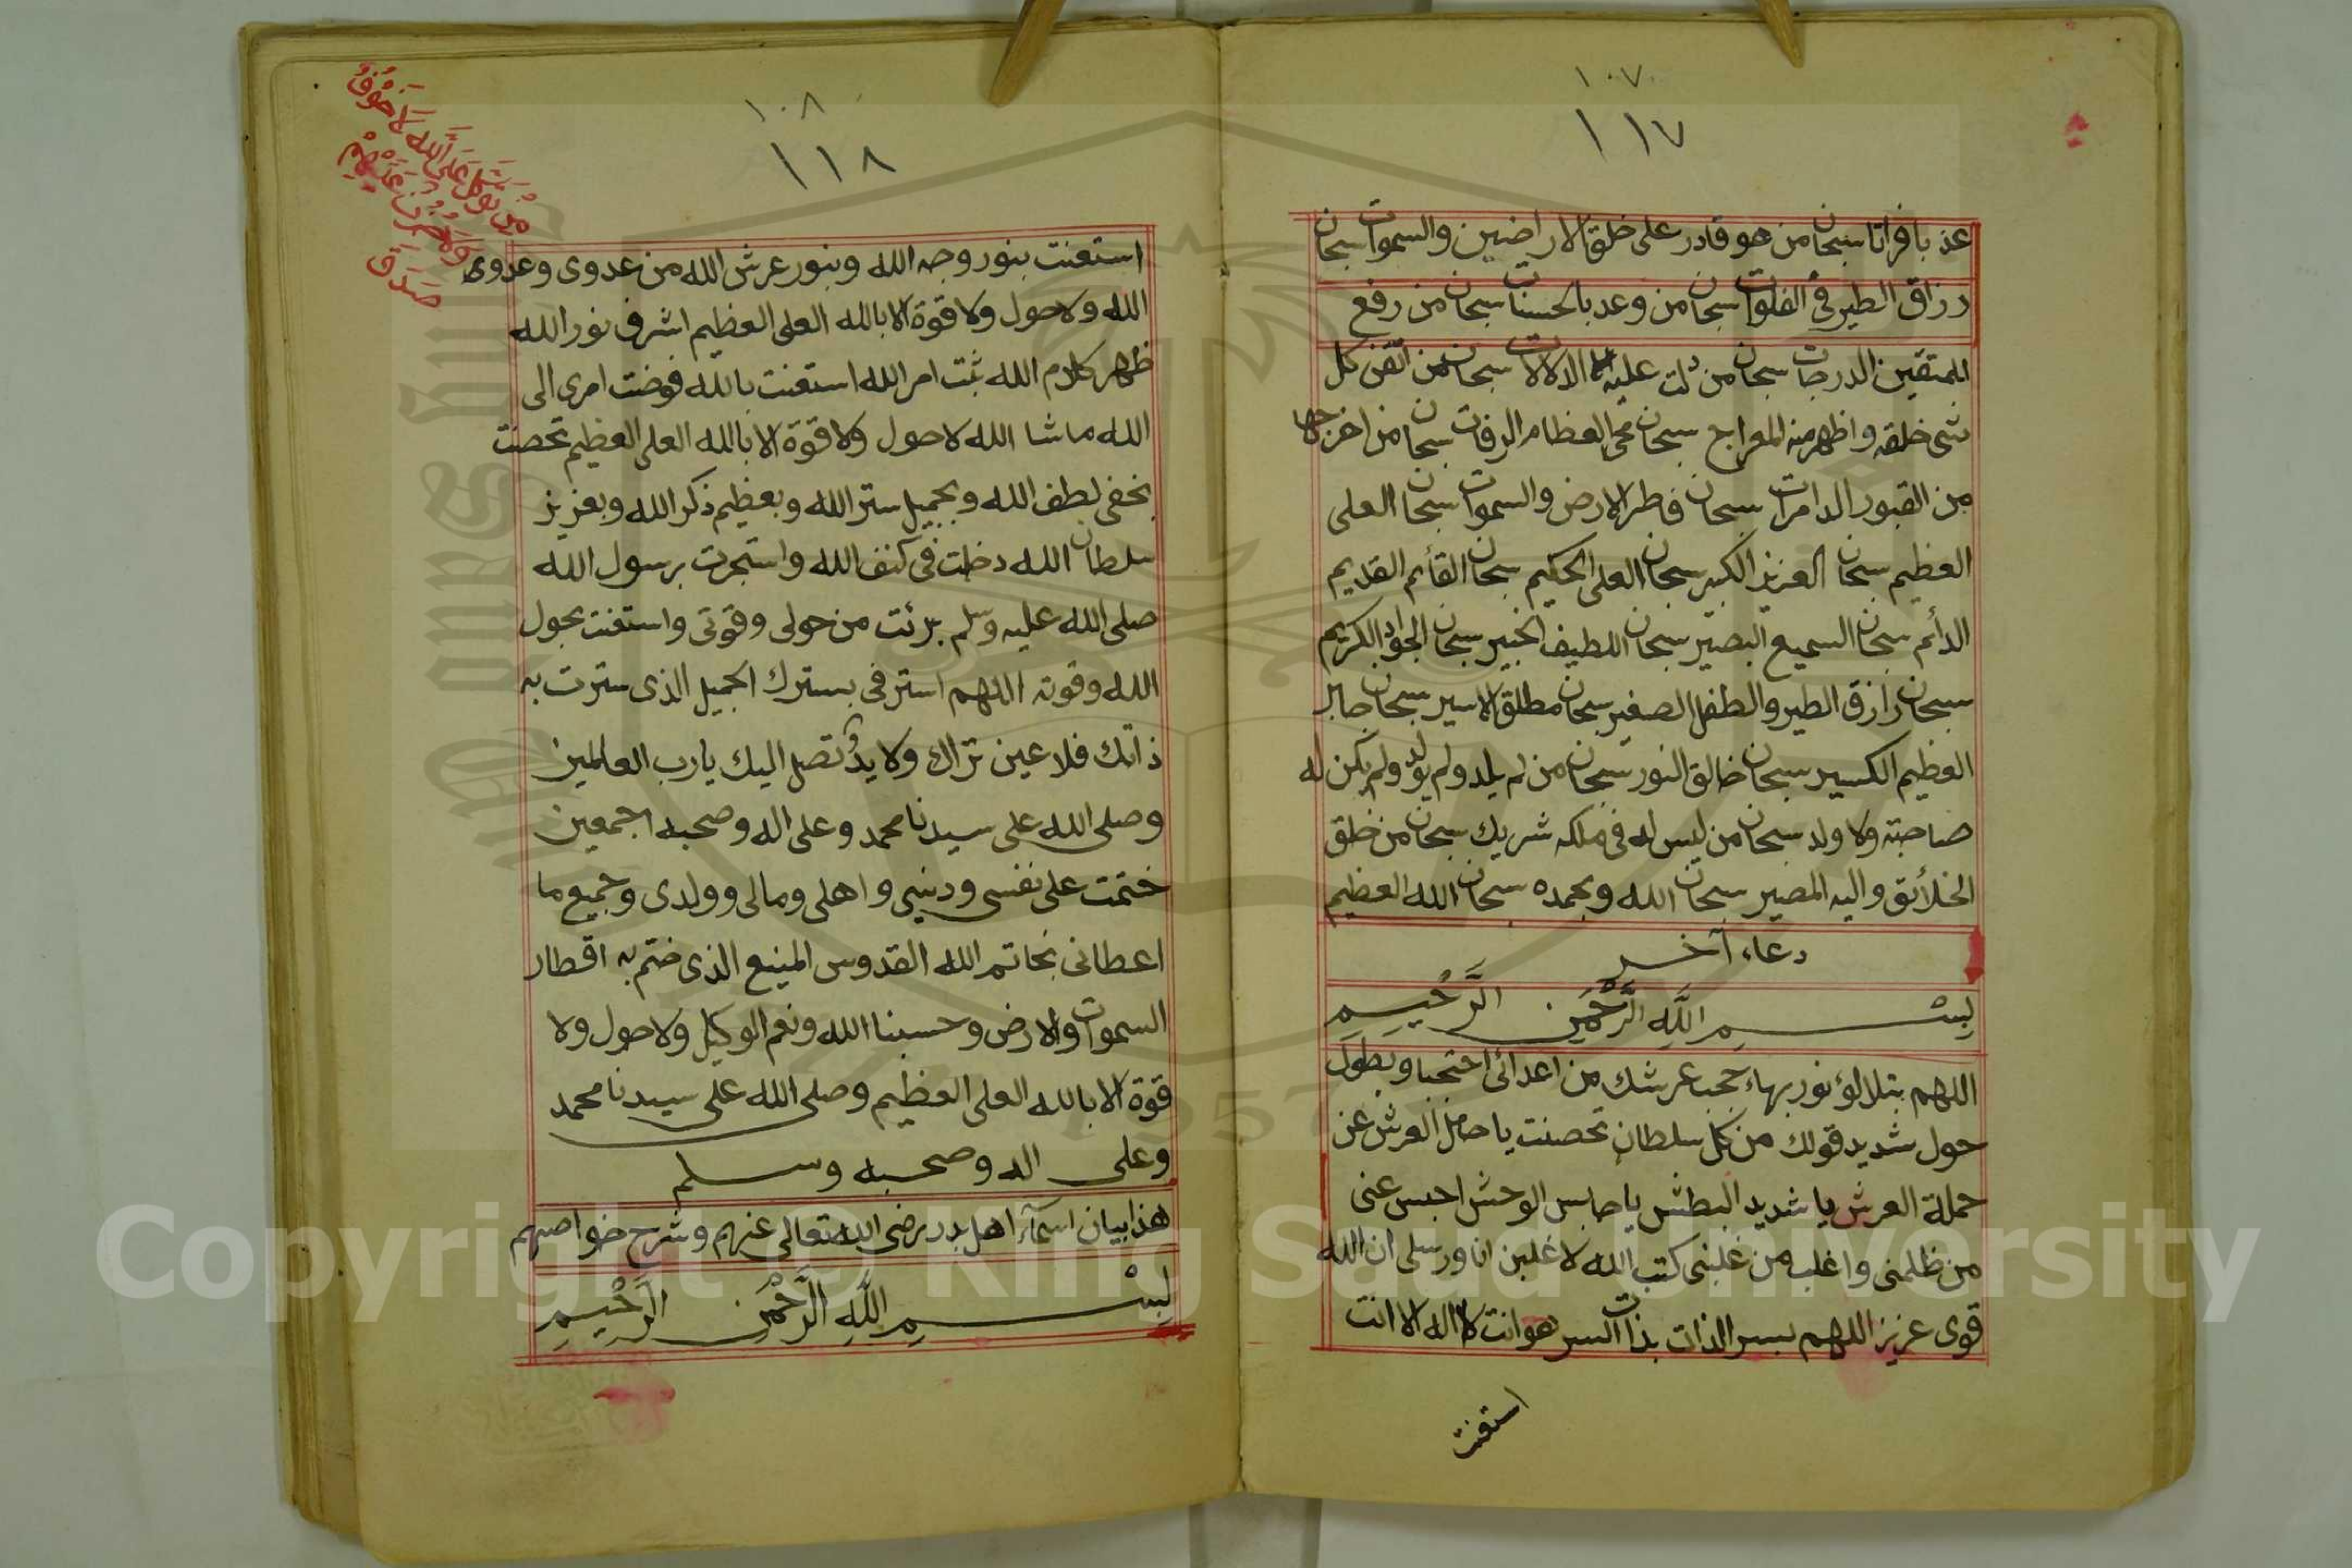 ١٠٧
١١٧
عذبا فراتا سبحان من هو قادر على خلق الاراضين والسموات سبحان
رزاق الطير في الفلوات سبحان من وعد بالحسنات سبحان من رفع
للمتقين الدرجات سبحان من دلت عليه الدلالات سبحان من اتقن كل
شى خلقه واظهر منه المعراج سبحان محى العظام الرفات سبحان من اخرجها
من القبور الدامرات سبحان فاطر الارض والسموات سبحان العلى
العظيم سبحان العزيز الكبير سبحان العلى الحكيم سبحان القائم القديم
الدائم سبحان السميع البصير سبحان اللطيف الخبير سبحان الجواد الكريم
سبحان رازق الطير والطفل الصغير سبحان مطلق الاسير سبحان جابر
العظيم الكسير سبحان خالق النور سبحان من لم يلد ولم يولد ولم يكن له
صاحبة ولا ولد سبحان من ليس له فى ملكه شريك سبحان من خلق
الخلائق واليه المصير سبحان الله وبحمده سبحان الله العظيم
دعاء آخر
بِسْمِ اللَّهِ الرَّحْمَنِ الرَّحِيمِ
اللهم بتلالؤ نور بهاء حجب عرشك من اعدائى احتجبا وبطول
حول شديد قولك من كل سلطان تحصنت يا حامل العرش عن
حملة العرش يا شديد البطش يا حابس الوحش احبس عنى
من ظلمنى واغلب من غلبنى كتب الله لاغلبن انا ورسلى ان الله
قوى عزيز اللهم بسر الذات بذات السر هو انت لا اله الا انت
استعنت
١٠٨
١١٨
مَن توكل عَلَى اللَّه لَا خَوْفٌ
وَلَا حُزْنٌ
صَدَقَ
استعنت بنور وجه الله وبنور عرش الله من عدوى وعدوى
الله ولا حول ولا قوة الا بالله العلى العظيم اشرف نور الله
ظهر كلام الله ثبت امر الله استعنت بالله فوضت امرى الى
الله ما شا الله لا حول ولا قوة الا بالله العلى العظيم تحصنت
بخفى لطف الله وبجميل ستر الله وبعظيم ذكر الله وبعزيز
سلطان الله دخلت فى كنف الله واستجرت برسول الله
صلى الله عليه وسلم برئت من حولى وقوتى واستعنت بحول
الله وقوته اللهم استرنى بسترك الجميل الذى سترت به
ذاتك فلا عين تراك ولا يدٌ تصل اليك يارب العالمين
وصلى الله على سيدنا محمد وعلى اله وصحبه اجمعين
ختمت على نفسى ودينى واهلى ومالى وولدى وجميع ما
اعطانى بخاتم الله القدوس المنيع الذى ختم به اقطار
السموات والارض وحسبنا الله ونعم الوكيل ولا حول ولا
قوة الا بالله العلى العظيم وصلى الله على سيدنا محمد
وعلى اله وصحبه وسلم
هذا بيان اسمآء اهل بدر رضى الله تعالى عنهم وشرح خواصهم
بِسْمِ اللَّهِ الرَّحْمَنِ الرَّحِيمِ
Copyright © King Saud University
1957